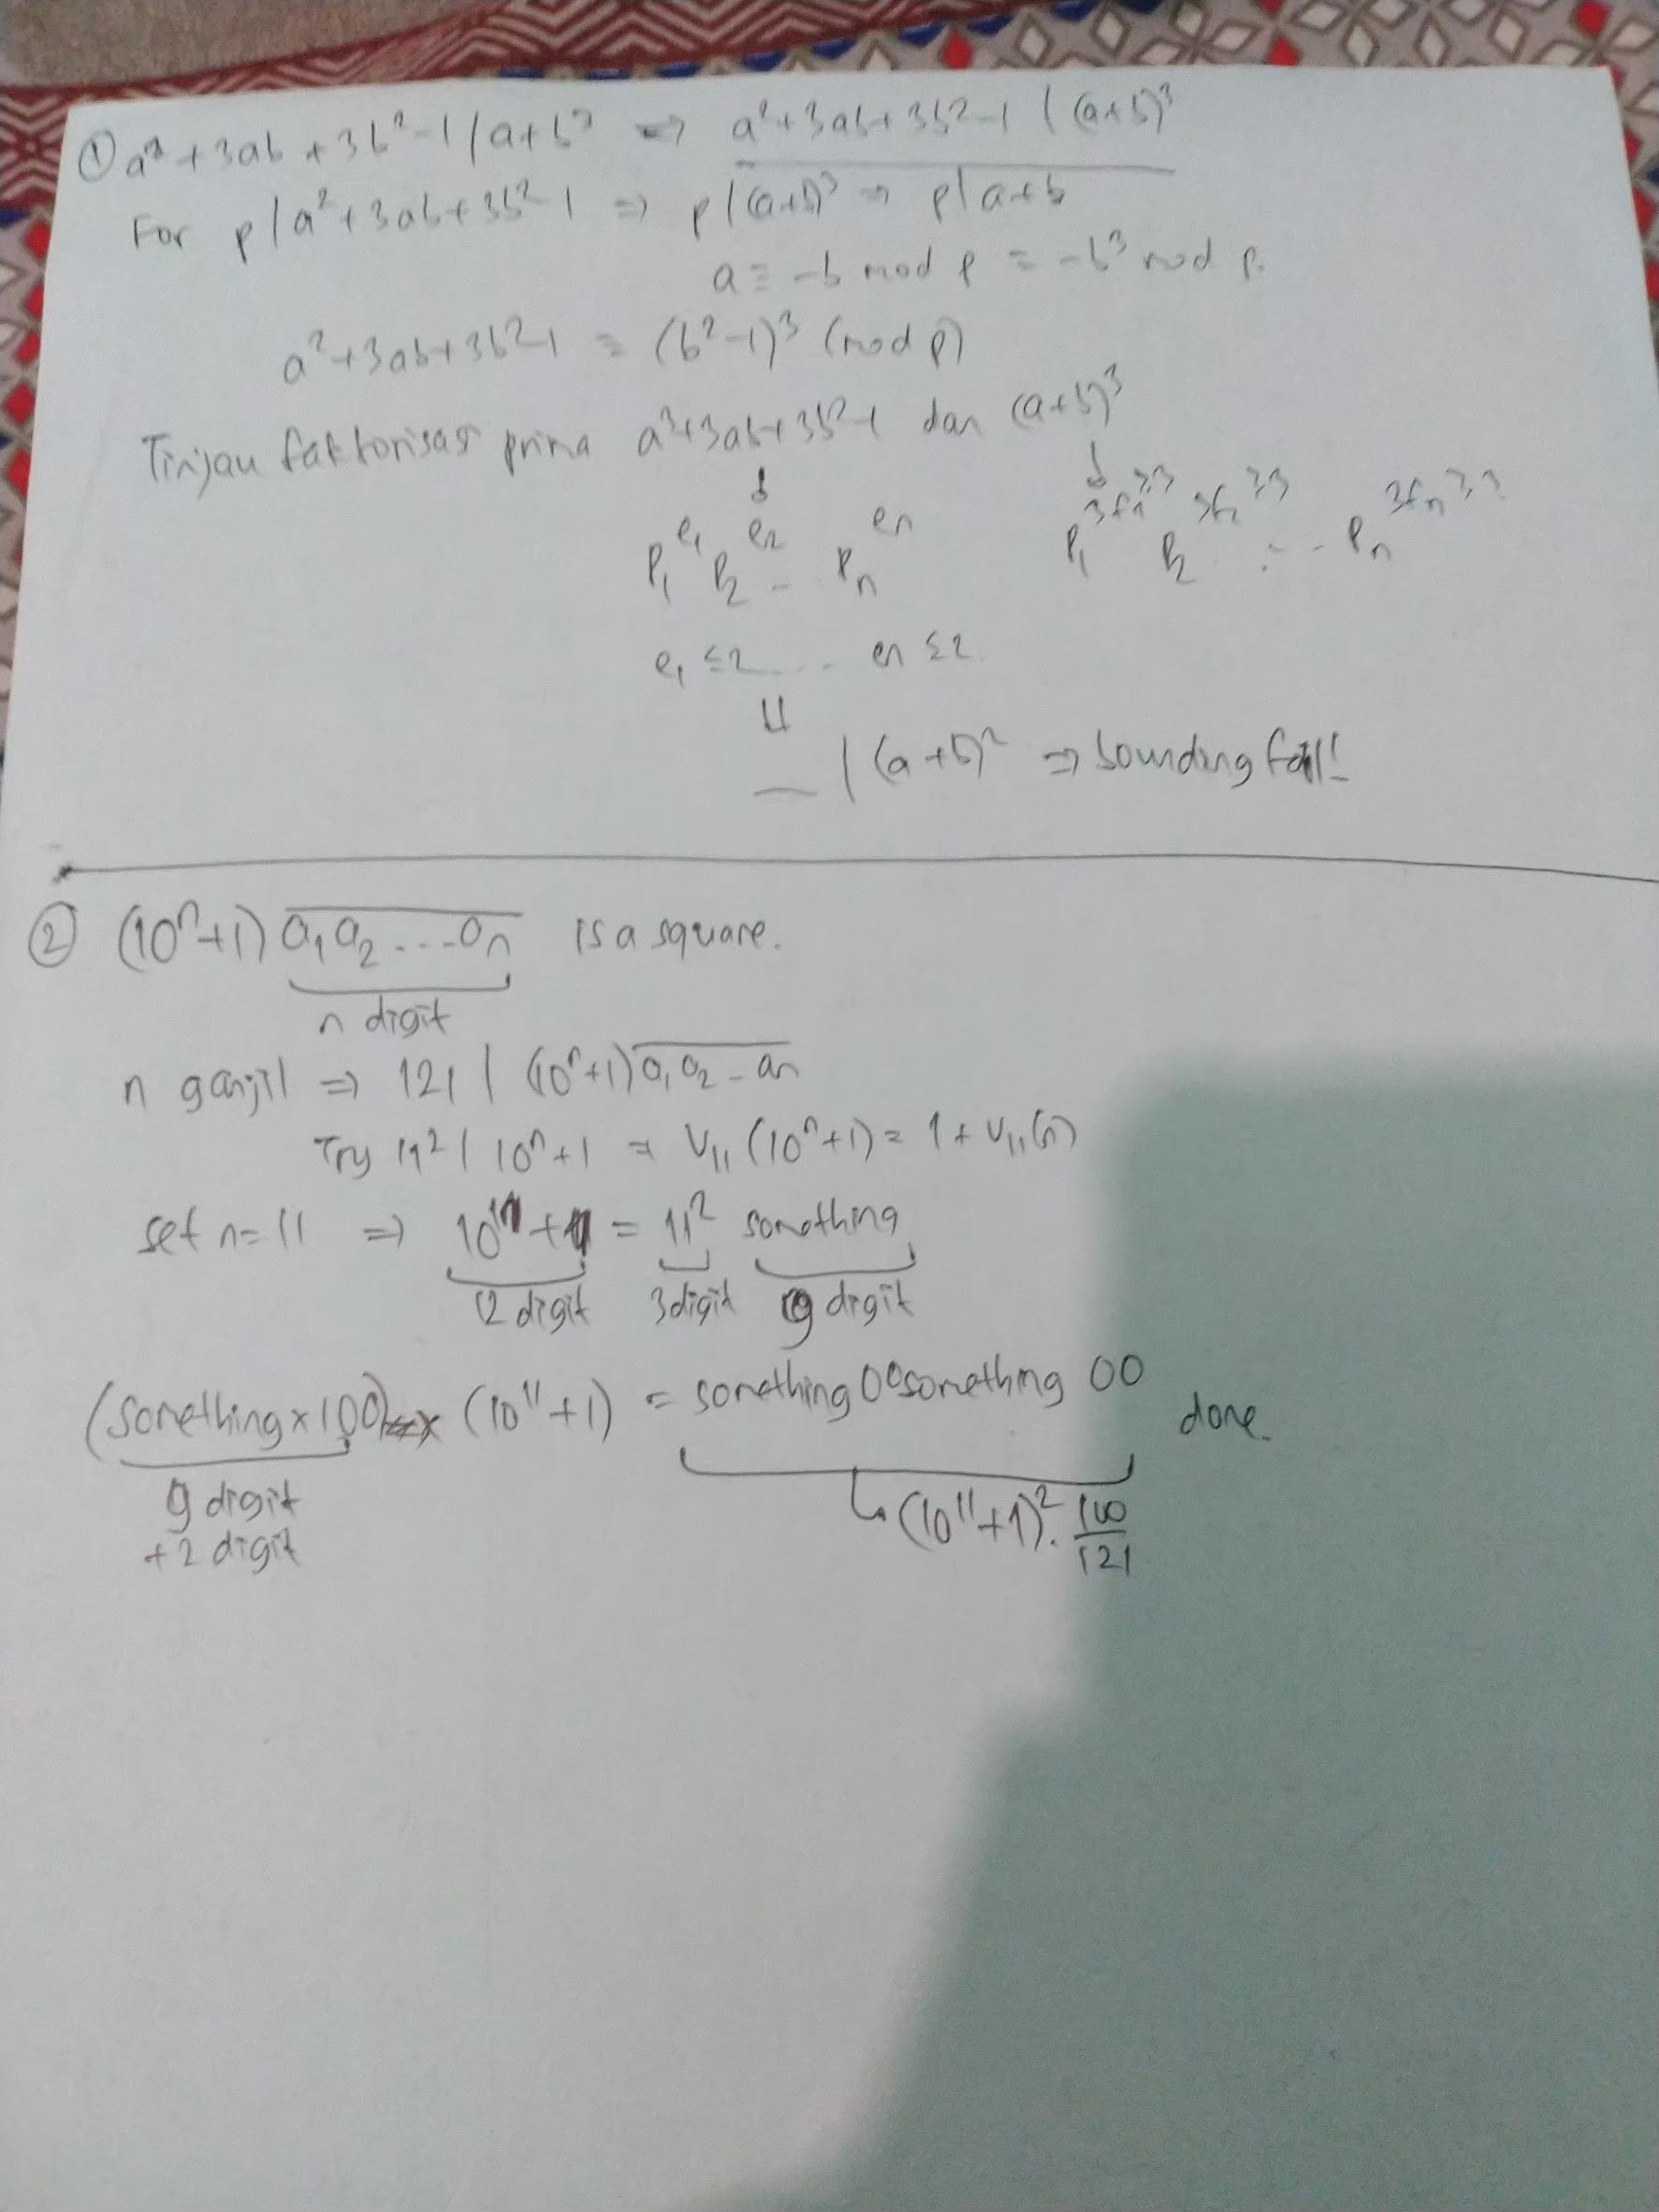 ① a² + 3ab + 3b² - 1 | a + b³ ⇒ a² + 3ab + 3b² - 1 | (a+b)³
For p | a² + 3ab + 3b² - 1 ⇒ p | (a+b)³ ⇒ p | a+b
a ≡ -b mod p ≡ -b³ mod p.
a² + 3ab + 3b² - 1 ≡ (b² - 1)³ (mod p)
Tinjau faktorisasi prima a² + 3ab + 3b² - 1 dan (a+b)³
↓ ↓
p₁^e₁ p₂^e₂ ... pₙ^eₙ p₁^3f₁≥3 p₂^3f₂≥3 ... pₙ^3fₙ≥3
e₁ ≤ 2 ... eₙ ≤ 2
⇓
__ | (a+b)² ⇒ bounding fail!
② (10ⁿ+1) a₁a₂...aₙ is a square.
n digit
n ganjil ⇒ 121 | (10ⁿ+1) a₁a₂...aₙ
Try 11² | 10ⁿ+1 ⇒ V₁₁(10ⁿ+1) = 1 + V₁₁(n)
set n = 11 ⇒ 10¹¹ + 1 = 11² something
12 digit 3 digit 9 digit
(something x 100) x (10¹¹+1) = something 00 something 00 done.
9 digit
+ 2 digit
↳ (10¹¹+1)² · 100/121